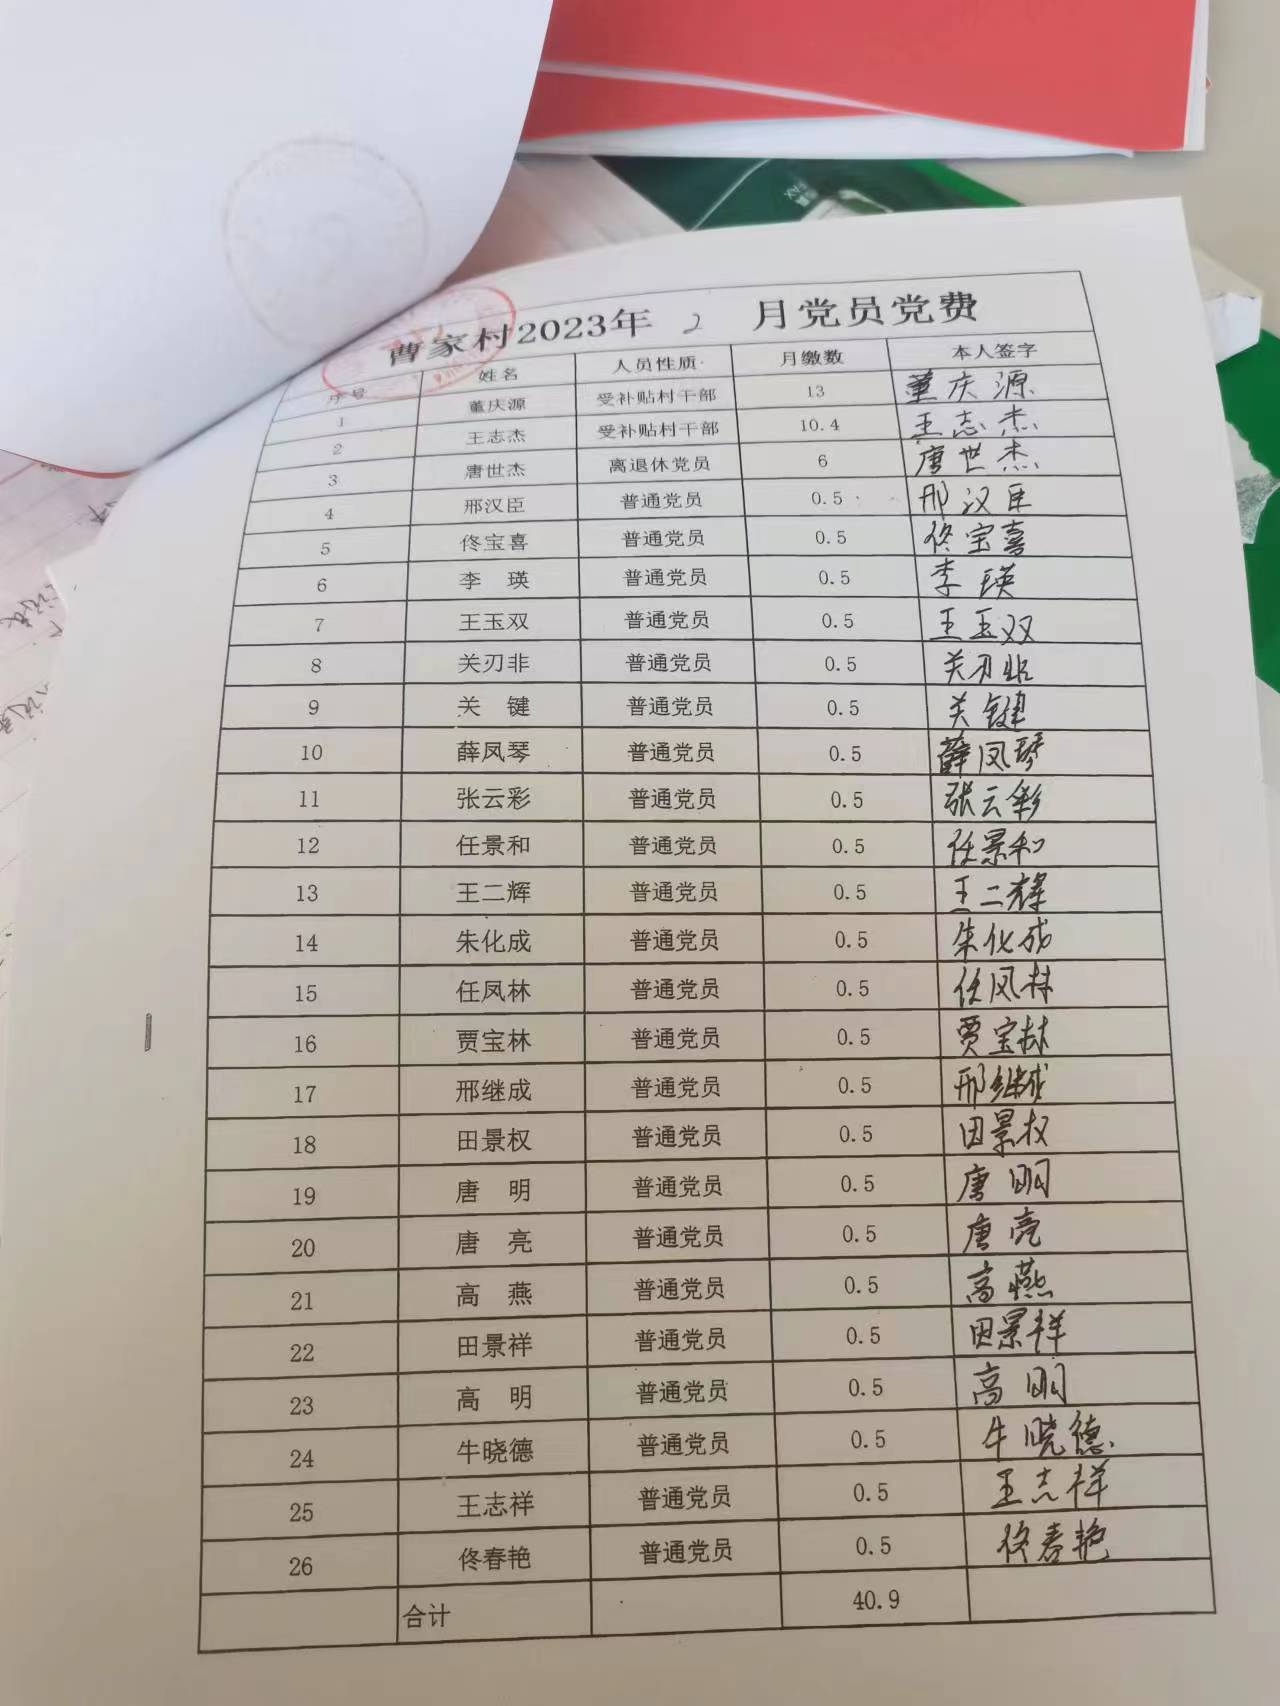 曹家村2023年 2 月党员党费
序号 姓名 人员性质 月缴数 本人签字
1 董庆源 受补贴村干部 13 董庆源
2 王志杰 受补贴村干部 10.4 王志杰
3 唐世杰 离退休党员 6 唐世杰
4 邢汉臣 普通党员 0.5 邢汉臣
5 佟宝喜 普通党员 0.5 佟宝喜
6 李 瑛 普通党员 0.5 李 瑛
7 王玉双 普通党员 0.5 王玉双
8 关刃非 普通党员 0.5 关刃非
9 关 键 普通党员 0.5 关键
10 薛凤琴 普通党员 0.5 薛凤琴
11 张云彩 普通党员 0.5 张云彩
12 任景和 普通党员 0.5 任景和
13 王二辉 普通党员 0.5 王二辉
14 朱化成 普通党员 0.5 朱化成
15 任凤林 普通党员 0.5 任凤林
16 贾宝林 普通党员 0.5 贾宝林
17 邢继成 普通党员 0.5 邢继成
18 田景权 普通党员 0.5 田景权
19 唐 明 普通党员 0.5 唐明
20 唐 亮 普通党员 0.5 唐亮
21 高 燕 普通党员 0.5 高燕
22 田景祥 普通党员 0.5 田景祥
23 高 明 普通党员 0.5 高明
24 牛晓德 普通党员 0.5 牛晓德
25 王志祥 普通党员 0.5 王志祥
26 佟春艳 普通党员 0.5 佟春艳
合计 40.9